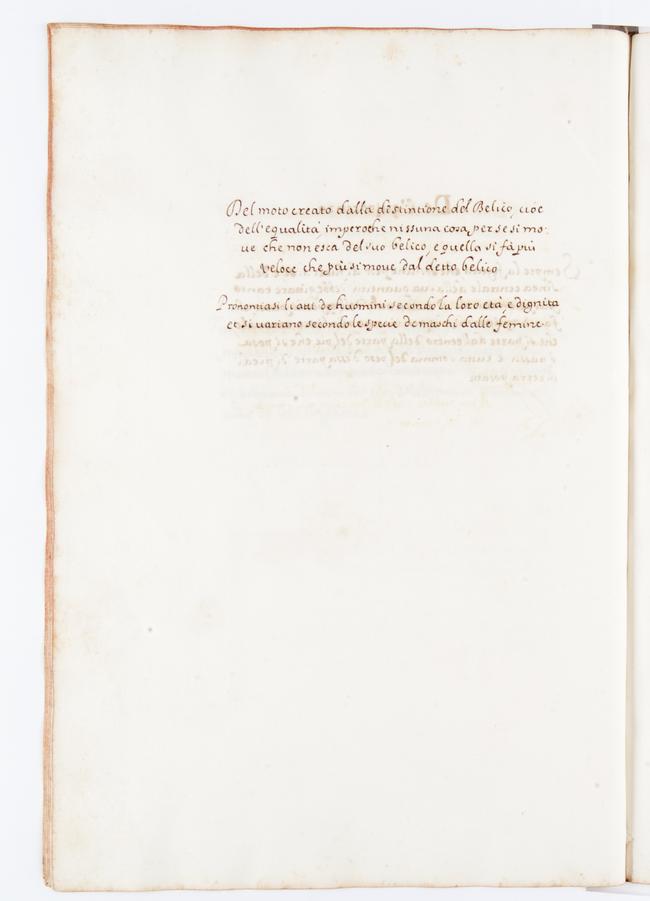 Del moto creato dalla destuntione del Belico, cioe
dell'equalita imperoche nissuna cosa per se si mo-
ue che non esca del suo belico, e quella si fà più
veloce che più si moue dal detto belico
Pronontiasi li atti de huomini secondo la loro età, e dignita
et si variano secondo le specie de maschi dalle femine.